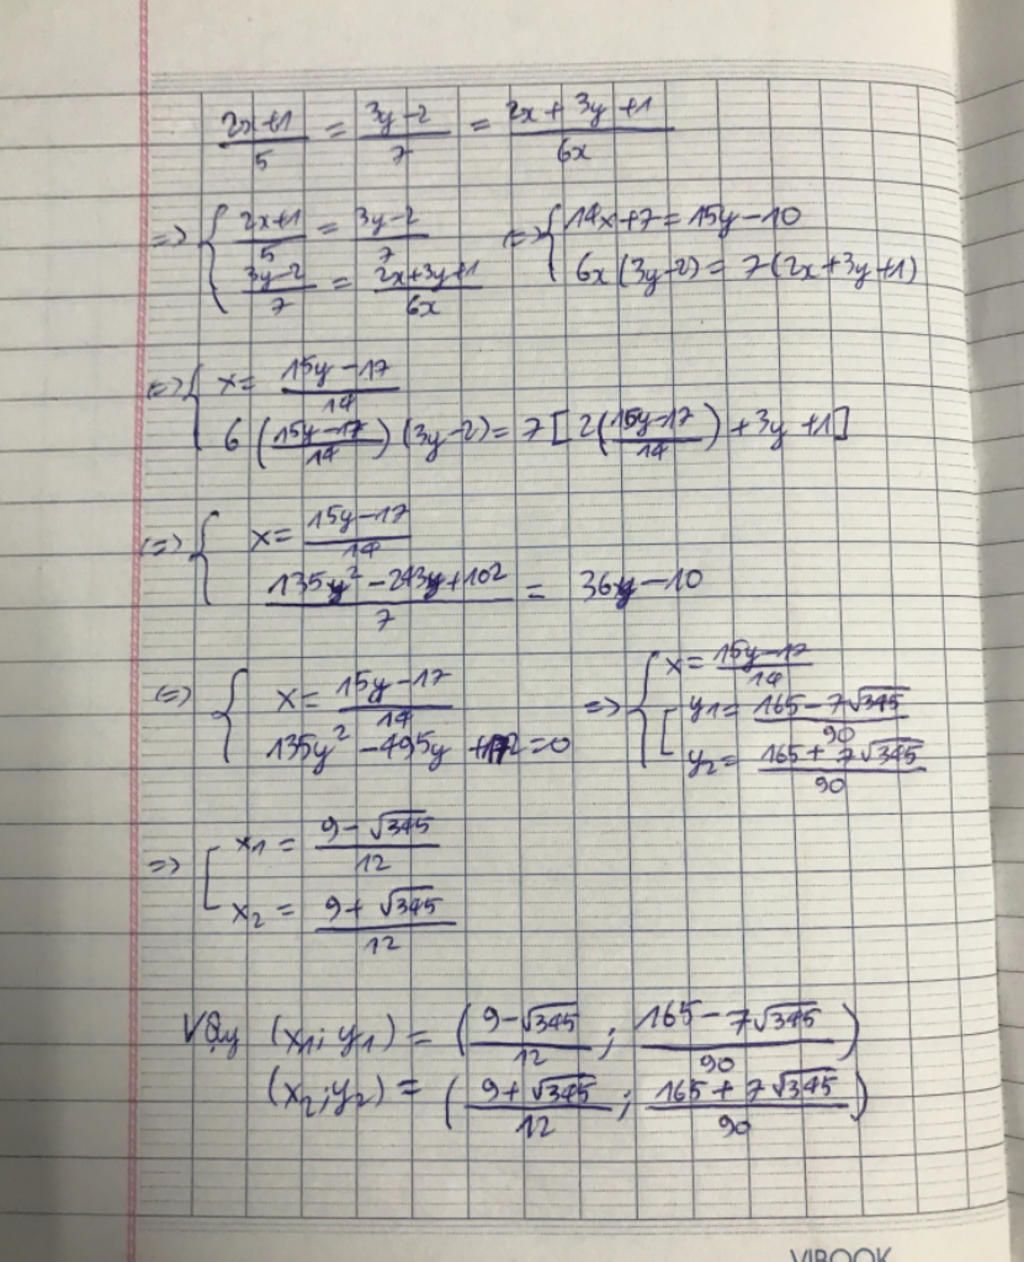 (2x+1)/5 = (3y-2)/7 = (2x+3y+1)/6x
=> { (2x+1)/5 = (3y-2)/7 <=> { 14x+7 = 15y-10
(3y-2)/7 = (2x+3y+1)/6x 6x(3y-2) = 7(2x+3y+1)
<=> { x = (15y-17)/14
6((15y-17)/14)(3y-2) = 7[2((15y-17)/14)+3y+1]
<=> { x = (15y-17)/14
(135y²-243y+102)/7 = 36y-10
<=> { x = (15y-17)/14 => { x = (15y-17)/14
135y²-495y+172=0 [ y1 = (165-7√345)/90
y2 = (165+7√345)/90
=> [ x1 = (9-√345)/12
x2 = (9+√345)/12
Vậy (x1;y1) = ((9-√345)/12 ; (165-7√345)/90)
(x2;y2) = ((9+√345)/12 ; (165+7√345)/90)
VIBOOK